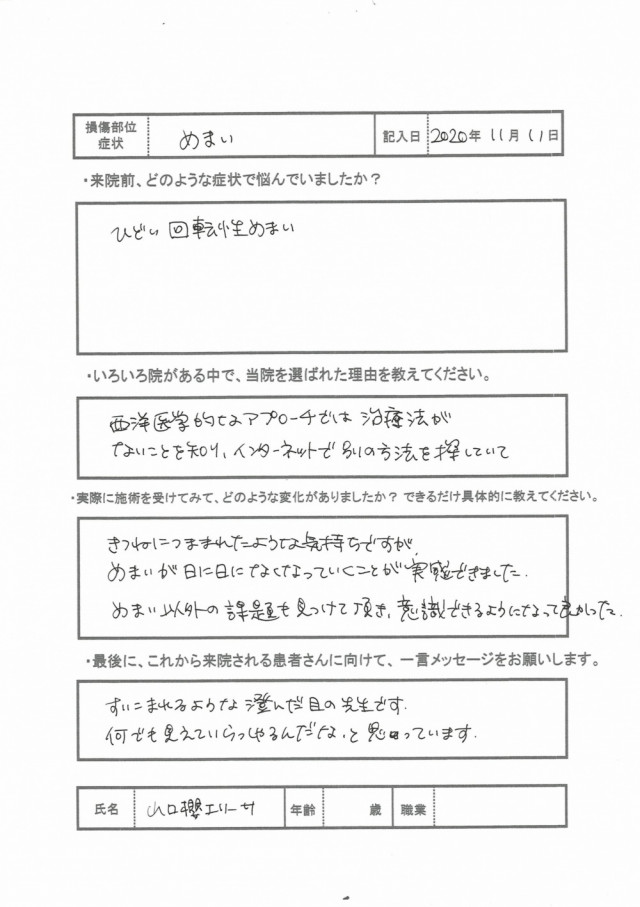 損傷部位
症状 めまい 記入日 2020年 11月 11日
・来院前、どのような症状で悩んでいましたか？
ひどい 回転性めまい
・いろいろ院がある中で、当院を選ばれた理由を教えてください。
西洋医学的なアプローチでは 治療法が
ないことを知り、インターネットで 別の方法を探していて
・実際に施術を受けてみて、どのような変化がありましたか？ できるだけ具体的に教えてください。
きつねにつままれたような気持ちですが、
めまいが日に日になくなっていくことが 実感できました.
めまい以外の課題も見つけて頂き、意識できるようになって良かった.
・最後に、これから来院される患者さんに向けて、一言メッセージをお願いします。
すいこまれるような 澄んだ目の先生です.
何でも見えていらっしゃるんだな、と思っています.
氏名 山口櫻エリーサ 年齢 歳 職業